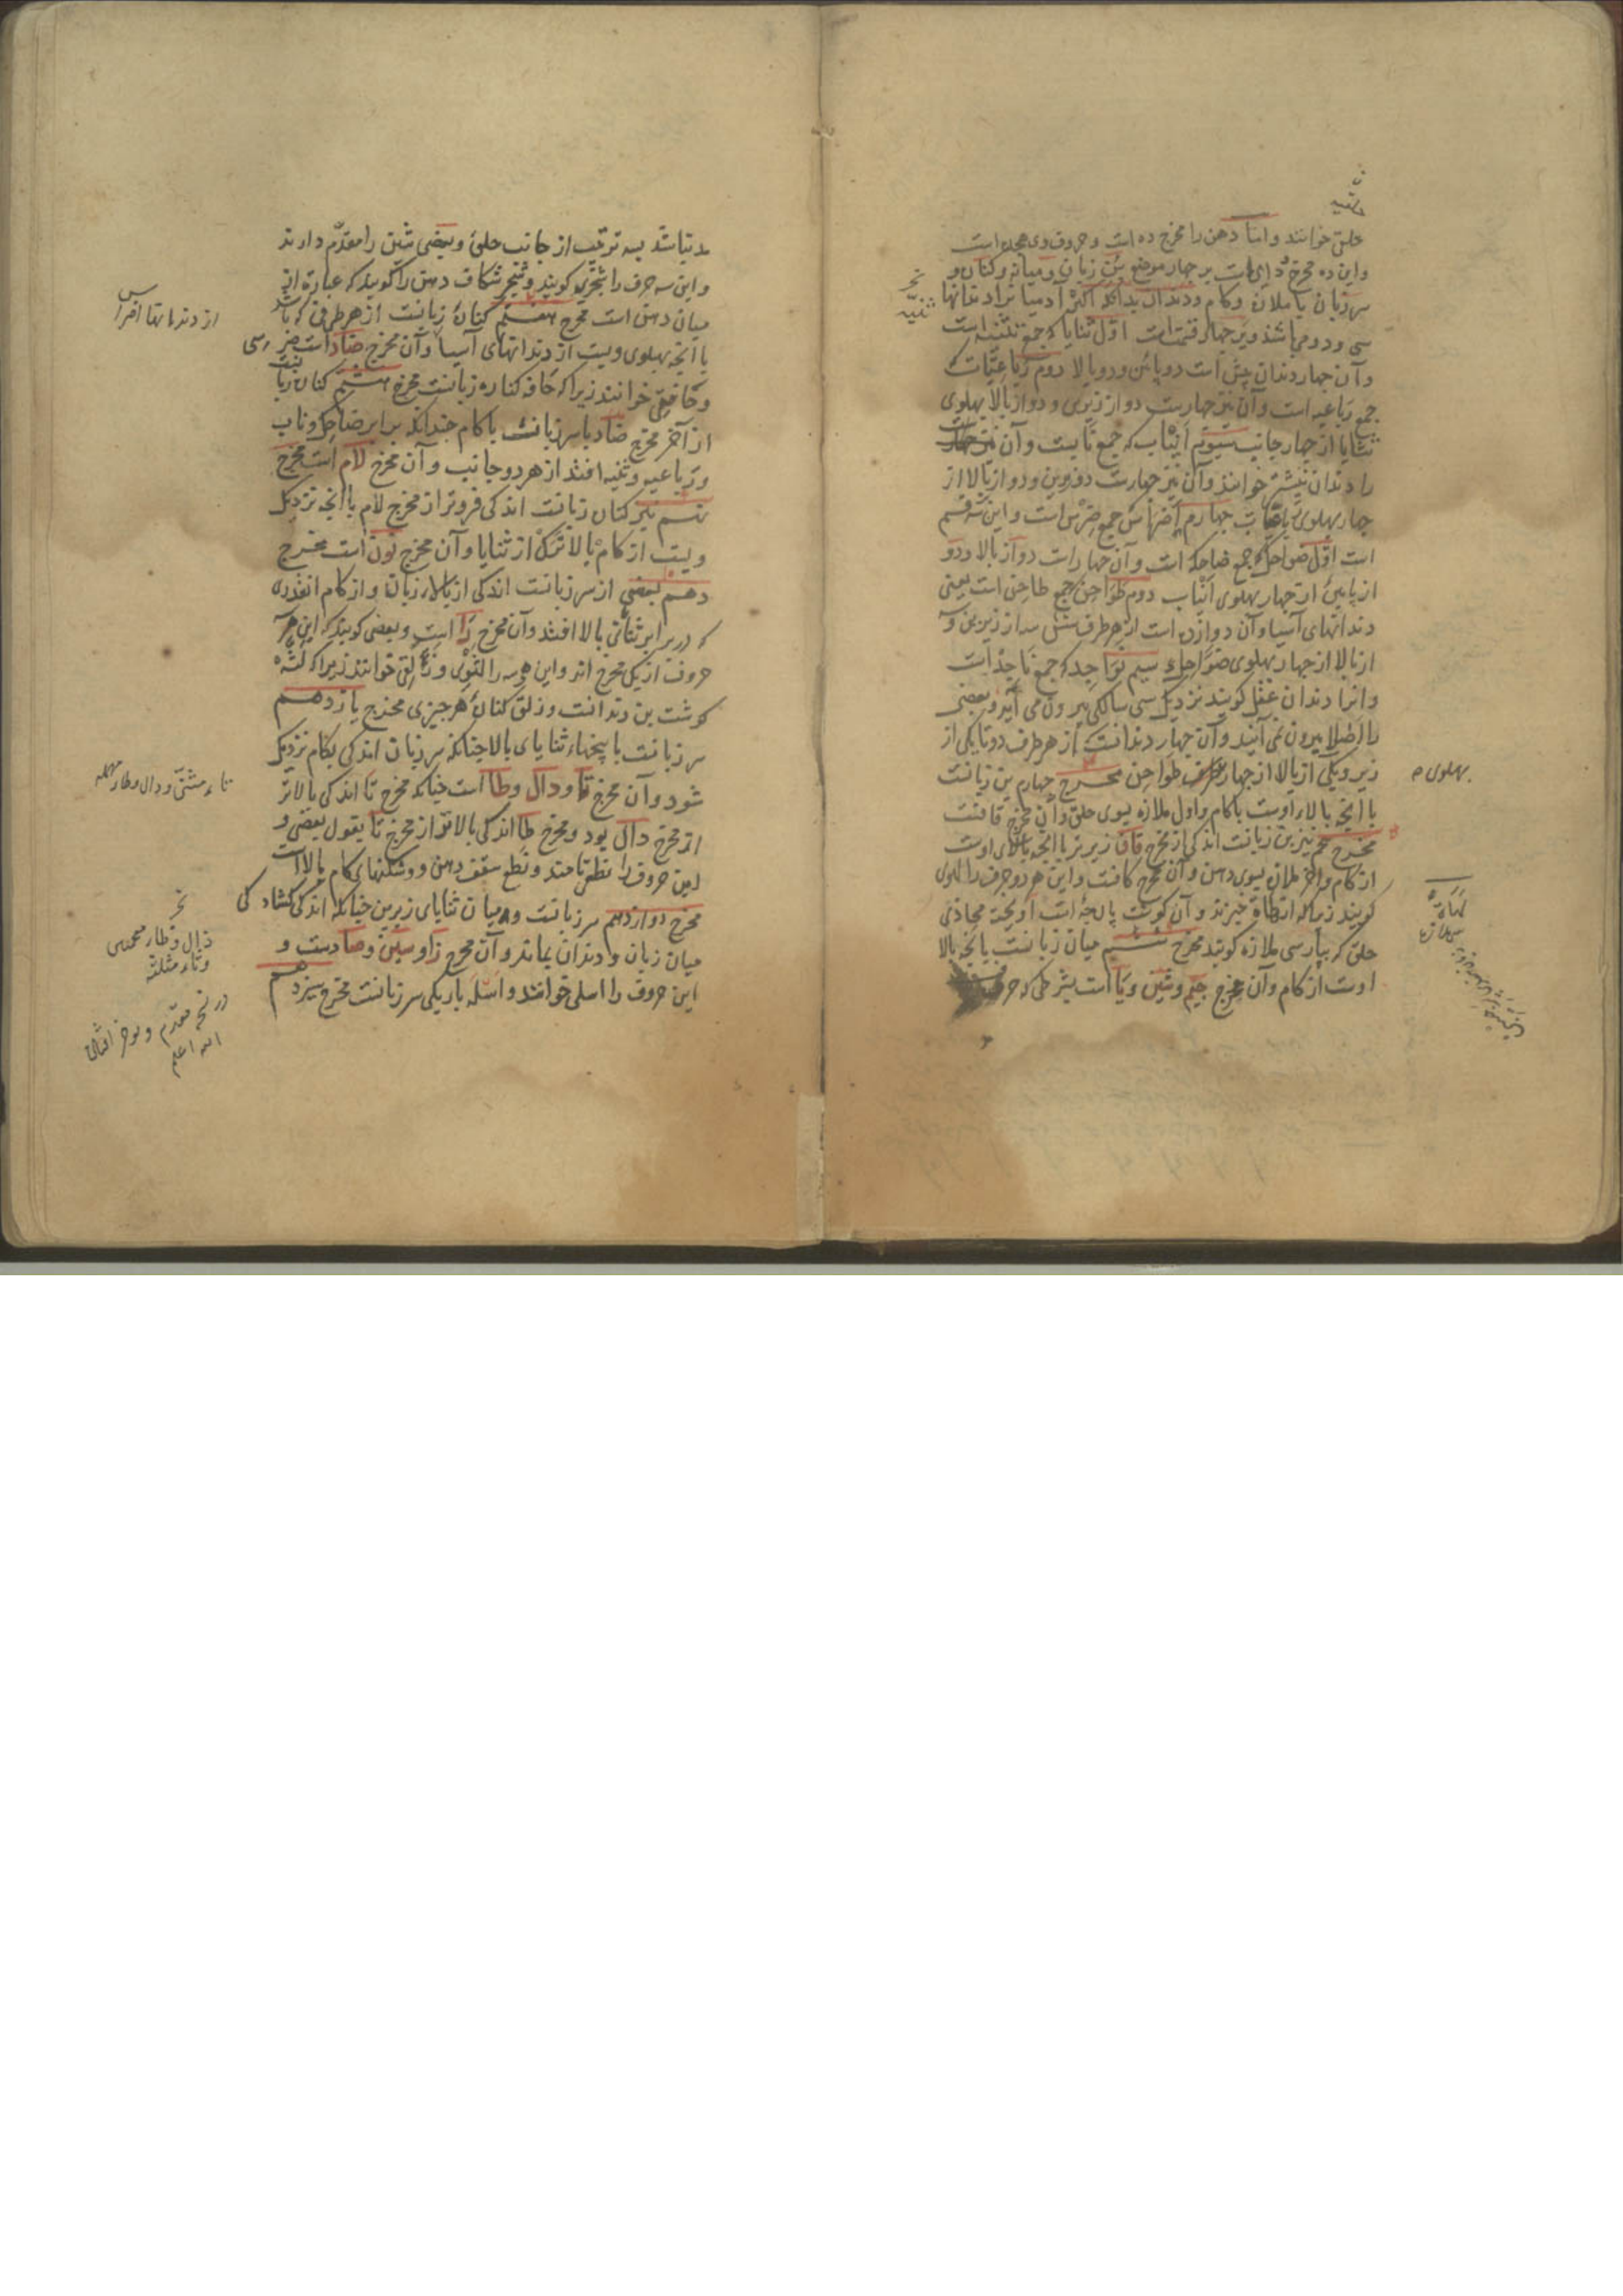 حلق خوانند و اما دهن را مخرج ده است و حروف وی هجده است
و این ده مخرج دایر است بر چهار موضع بن زبان و میانه و کنار و
سر زبان با ملازه و کام و دندان بدانکه اکثر آدمیا نرا دندانها
سی و دو می باشد و بر چهار قسمت است اول ثنایا که جمع ثنیه است
و آن چهار دندان پیش است دو پائین و دو بالا دوم رباعیات که
جمع رباعیه است و آن نیز چهارست دو از زیرین و دو از بالا بهلوی
ثنایا از چهار جانب سیوم انیاب که جمع نابست و آن
را دندان نیشتر خوانند و آن نیز چهارست دو زیرین و دو از بالا از
چهار بهلوی رباعیات چهارم اضراس جمع ضرس است و این سه قسم
است اول ضواحک جمع ضاحکه است و آن چهار است دو از بالا و دو
از پایین از چهار بهلوی انیاب دوم طواحن جمع طاحن است یعنی
دندانهای آسیا و آن دوازده است از هر طرف شش سه از زیرین و سه
از بالا از چهار بهلوی ضواحک سیم نواجد که جمع ناجذ است
و انرا دندان عقل کویند نزدیک سی سالکی بیرون می آید و بعضی
را اصلا بیرون نمی آیند و آن چهار دندانست از هر طرف دو تا یکی از
زیر و یکی از بالا از چهار طواحن مخرج چهارم بن زبانست
با انچه بالاء اوست با کام و اول ملازه بسوی حلق و آن مخرج قافست
مخرج پنجم نیز بن زبانست اندکی از مخرج قاف زیرتر با انچه بالای اوست
از کام و اخر ملازه بسوی دهن و آن مخرج کافست و این هر دو حرف را لهوی
کویند زیرا که از لهاة خیزند و آن کوشت پارچه است آویخته محاذی
حلق که بپارسی ملازه کویند مخرج ششم میان زبانست با انچه بالا
اوست از کام و آن مخرج جیم و شین و یا است بشرطی که حرف
ثنیه
بهلوی
لهاة
مد نباشد بسه ترتیب از جانب حلق و بعضی شین را مقدم دارند
و این سه حرف را شجری کویند و شجر شکاف دهن را کویند که عبارة از
میان دهن است مخرج هفتم کناره زبانست از هر طرفی که باشد
با انچه بهلوی ویست از دندانهای آسیا و آن مخرج ضاد است
و حافی خوانند زیرا که حافه کناره زبانست مخرج هشتم کناره زبا
از آخر مخرج ضاد با سر زبانست با کام چندانکه برابر ضاحک و ناب
و رباعیه و ثنیه افتد از هر دو جانب و آن مخرج لام است مخرج
نهم نیز کنار زبانست اندکی فروتر از مخرج لام با انچه نزدیک
ویست از کام بالاترک از ثنایا و آن مخرج نون است مخرج
دهم بعضی از سر زبانست اندکی از بالاء زبان و از کام انقدر
که در برابر ثنائی بالا افتد و آن مخرج را است و بعضی کویند که این هر
حروف از یکی مخرج اند و این هر سه را لثوی و ذلقی خوانند زیرا که لثه
کوشت بن دندانست و ذلق کناره هر چیزی مخرج یازدهم
سر زبانست با بیخهاء ثنایای بالا چنانکه سر زبان اندکی بکام نزدیک
شود و آن مخرج تا و دال و طا است چنانکه مخرج تا اندکی بالاتر
از مخرج دال بود و مخرج طا اندکی بالاتر از مخرج تا بقول بعضی و
این حروف را نطعی نامند و نطع سقف دهن و شکنهای کام بالا است
مخرج دوازدهم سر زبانست و میان ثنایای زیرین چنانکه اندکی کشادگی
میان زبان و دندان بماند و آن مخرج زا و سین و صادست و
این حروف را اسلی خوانند و اسله باریکی سر زبانست مخرج سیزدهم
از دندانها اضراس
تاء مثناة و دال و طاء مهمله
ذال و ظاء معجمتین
و ثاء مثلثه
الله اعلم